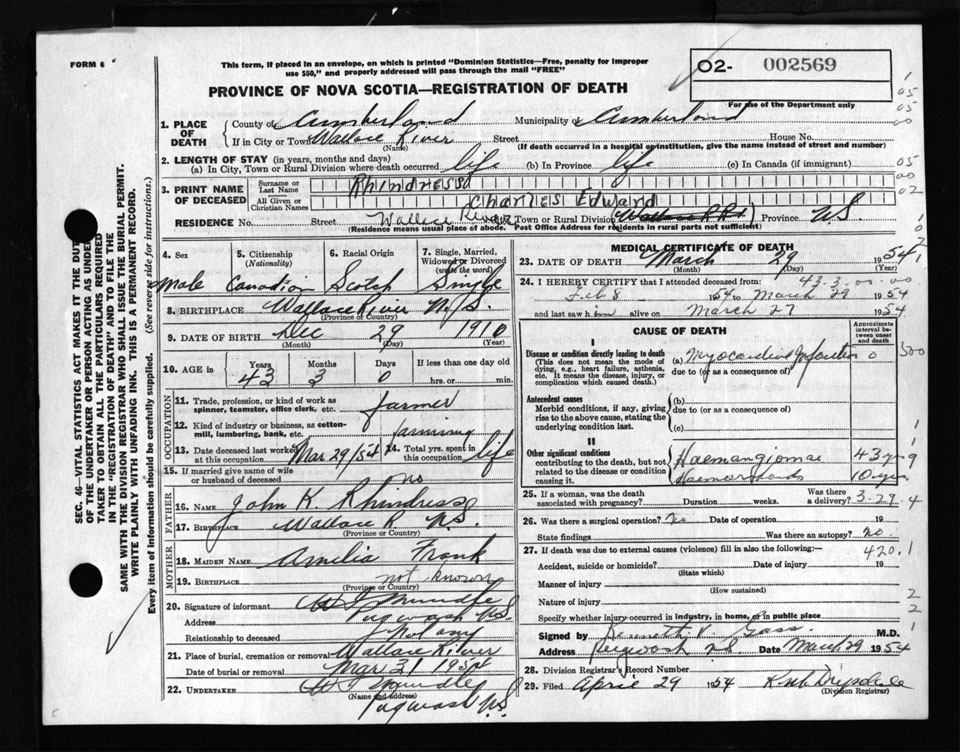 FORM 6
This form, if placed in an envelope, on which is printed "Dominion Statistics—Free, penalty for improper
use $50," and properly addressed will pass through the mail "FREE"
O2- 002569
For use of the Department only
PROVINCE OF NOVA SCOTIA—REGISTRATION OF DEATH
1. PLACE OF DEATH
County of Cumberland Municipality of Cumberland
If in City or Town Wallace River Street House No.
(Name) (If death occurred in a hospital or institution, give the name instead of street and number)
2. LENGTH OF STAY (in years, months and days)
(a) In City, Town or Rural Division where death occurred life (b) In Province life (c) In Canada (if immigrant)
3. PRINT NAME OF DECEASED
Surname or Last Name Rhindress
All Given or Christian Names Charles Edward
RESIDENCE No. Street Wallace River City Town or Rural Division Province N.S.
(Residence means usual place of abode. Post Office Address for residents in rural parts not sufficient)
4. Sex Male
5. Citizenship (Nationality) Canadian
6. Racial Origin Scotch
7. Single, Married, Widowed or Divorced (write the word) Single
8. BIRTHPLACE Wallace River N.S.
(Province or Country)
9. DATE OF BIRTH Dec 29 1910
(Month) (Day) (Year)
10. AGE in Years 43 Months 3 Days 0 If less than one day old
hrs. or min.
OCCUPATION
11. Trade, profession, or kind of work as spinner, teamster, office clerk, etc. farmer
12. Kind of industry or business, as cotton-mill, lumbering, bank, etc. farming
13. Date deceased last worked at this occupation Mar 29/54
14. Total yrs. spent in this occupation life
15. If married give name of wife or husband of deceased no
FATHER
16. NAME John K. Rhindress
17. BIRTHPLACE Wallace R. N.S.
(Province or Country)
MOTHER
18. MAIDEN NAME Amelia Frank
19. BIRTHPLACE not known
(Province or Country)
20. Signature of informant
Address Pugwash N.S.
Relationship to deceased Not any
21. Place of burial, cremation or removal Wallace River
Date of burial or removal Mar 31 1954
22. UNDERTAKER
(Name and address)
Pugwash N.S.
MEDICAL CERTIFICATE OF DEATH
23. DATE OF DEATH March 29 1954
(Month) (Day) (Year)
43-3-00-00
24. I HEREBY CERTIFY that I attended deceased from
Feb 8 1954 to March 29 1954
and last saw him alive on March 27 1954
CAUSE OF DEATH
Approximate interval between onset and death
I
Disease or condition directly leading to death
(This does not mean the mode of dying, e.g., heart failure, asthenia, etc. It means the disease, injury, or complication which caused death.)
(a) Myocardial Infarction 0
due to (or as a consequence of)
Antecedent causes
Morbid conditions, if any, giving rise to the above cause, stating the underlying condition last.
(b)
due to (or as a consequence of)
(c)
II
Other significant conditions
contributing to the death, but not related to the disease or condition causing it.
Haemangioma 43 yrs
Haemorrhoids 10 yrs
25. If a woman, was the death associated with pregnancy? Duration weeks. Was there a delivery?
3-29-4
26. Was there a surgical operation? No Date of operation 19
State findings Was there an autopsy? no.
27. If death was due to external causes (violence) fill in also the following:— 420.1
Accident, suicide or homicide? Date of injury 19
(State which)
Manner of injury
(How sustained)
Nature of injury
Specify whether injury occurred in industry, in home, or in public place
Signed by Kenneth V Gass M.D.
Address Pugwash NS Date March 29 1954
28. Division Registrar's Record Number
29. Filed April 29 1954
(Division Registrar)
SEC. 46—VITAL STATISTICS ACT MAKES IT THE DUTY
OF THE UNDERTAKER OR PERSON ACTING AS UNDER-
TAKER TO OBTAIN ALL THE PARTICULARS REQUIRED
IN THE "REGISTRATION OF DEATH" AND TO FILE THE
SAME WITH THE DIVISION REGISTRAR WHO SHALL ISSUE THE BURIAL PERMIT.
WRITE PLAINLY WITH UNFADING INK. THIS IS A PERMANENT RECORD.
Every item of information should be carefully supplied. (See reverse side for instructions.)